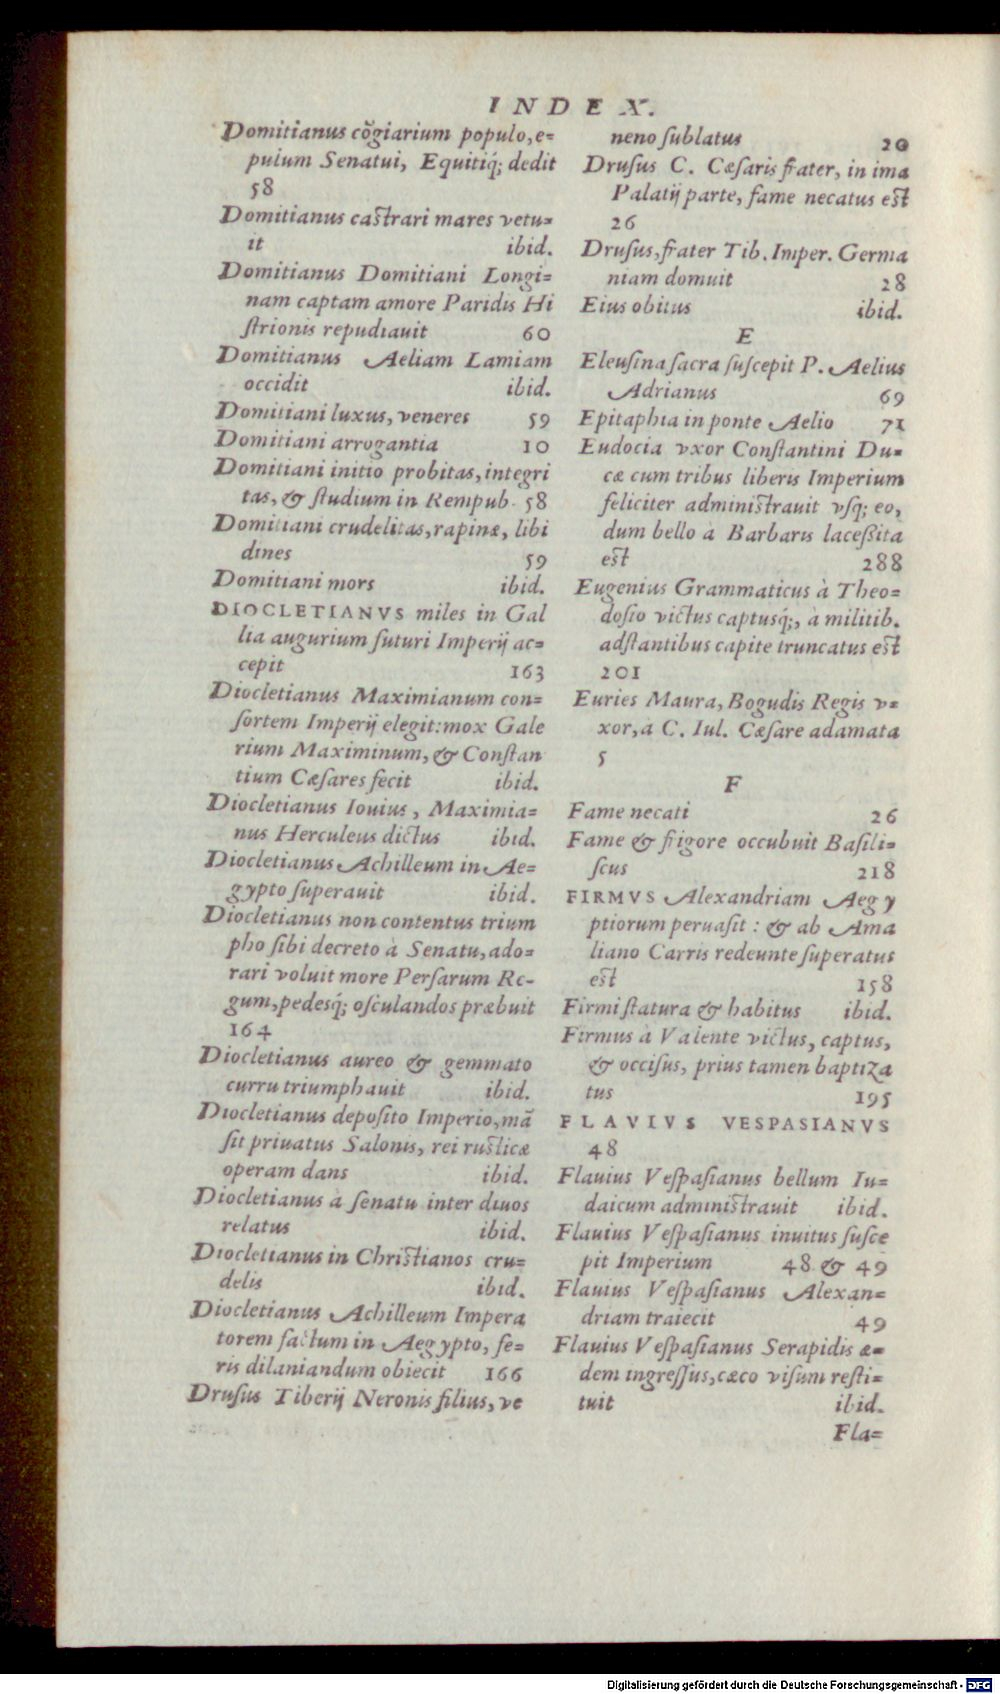 INDEX.
Domitianus cõgiarium populo, e=
pulum Senatui, Equitiq́; dedit
58
Domitianus castrari mares vetu=
it ibid.
Domitianus Domitiani Longi=
nam captam amore Paridis Hi
ſtrionis repudiauit 60
Domitianus Aeliam Lamiam
occidit ibid.
Domitiani luxus, veneres 59
Domitiani arrogantia 10
Domitiani initio probitas, integri
tas, & ſtudium in Rempub. 58
Domitiani crudelitas, rapinæ, libi
dines 59
Domitiani mors ibid.
DIOCLETIANVS miles in Gal
lia augurium futuri Imperij ac=
cepit 163
Diocletianus Maximianum con=
ſortem Imperij elegit: mox Gale
rium Maximinum, & Conſtan
tium Cæſares fecit ibid.
Diocletianus Iouius, Maximia=
nus Herculeus dictus ibid.
Diocletianus Achilleum in Ae=
gypto ſuperauit ibid.
Diocletianus non contentus trium
pho ſibi decreto à Senatu, ado=
rari voluit more Perſarum Re-
gum, pedesq́; oſculandos præbuit
164
Diocletianus aureo & gemmato
curru triumphauit ibid.
Diocletianus depoſito Imperio, mã
ſit priuatus Salonis, rei rusticæ
operam dans ibid.
Diocletianus à ſenatu inter diuos
relatus ibid.
Diocletianus in Christianos cru=
delis ibid.
Diocletianus Achilleum Impera
torem factum in Aegypto, fe=
ris dilaniandum obiecit 166
Druſus Tiberij Neronis filius, ve
neno ſublatus 20
Druſus C. Cæſaris frater, in ima
Palatij parte, fame necatus est
26
Druſus, frater Tib. Imper. Germa
niam domuit 28
Eius obitus ibid.
E
Eleuſina ſacra ſuſcepit P. Aelius
Adrianus 69
Epitaphia in ponte Aelio 71
Eudocia vxor Conſtantini Du=
cæ cum tribus liberis Imperium
feliciter administrauit vſq; eo,
dum bello à Barbaris laceßita
est 288
Eugenius Grammaticus à Theo=
doſio victus captusq́;, à militib.
adſtantibus capite truncatus est
201
Euries Maura, Bogudis Regis v=
xor, à C. Iul. Cæſare adamata
5
F
Fame necati 26
Fame & frigore occubuit Baſili=
ſcus 218
FIRMVS Alexandriam Aegy
ptiorum peruaſit : & ab Ama
liano Carris redeunte ſuperatus
est 158
Firmi ſtatura & habitus ibid.
Firmus à Valente victus, captus,
& occiſus, prius tamen baptiza
tus 195
FLAVIVS VESPASIANVS
48
Flauius Veſpaſianus bellum Iu=
daicum administrauit ibid.
Flauius Veſpaſianus inuitus ſuſce
pit Imperium 48 & 49
Flauius Veſpaſianus Alexan=
driam traiecit 49
Flauius Veſpaſianus Serapidis æ=
dem ingreſſus, cæco viſum reſti=
tuit ibid.
Fla=
Digitalisierung gefördert durch die Deutsche Forschungsgemeinschaft - DFG